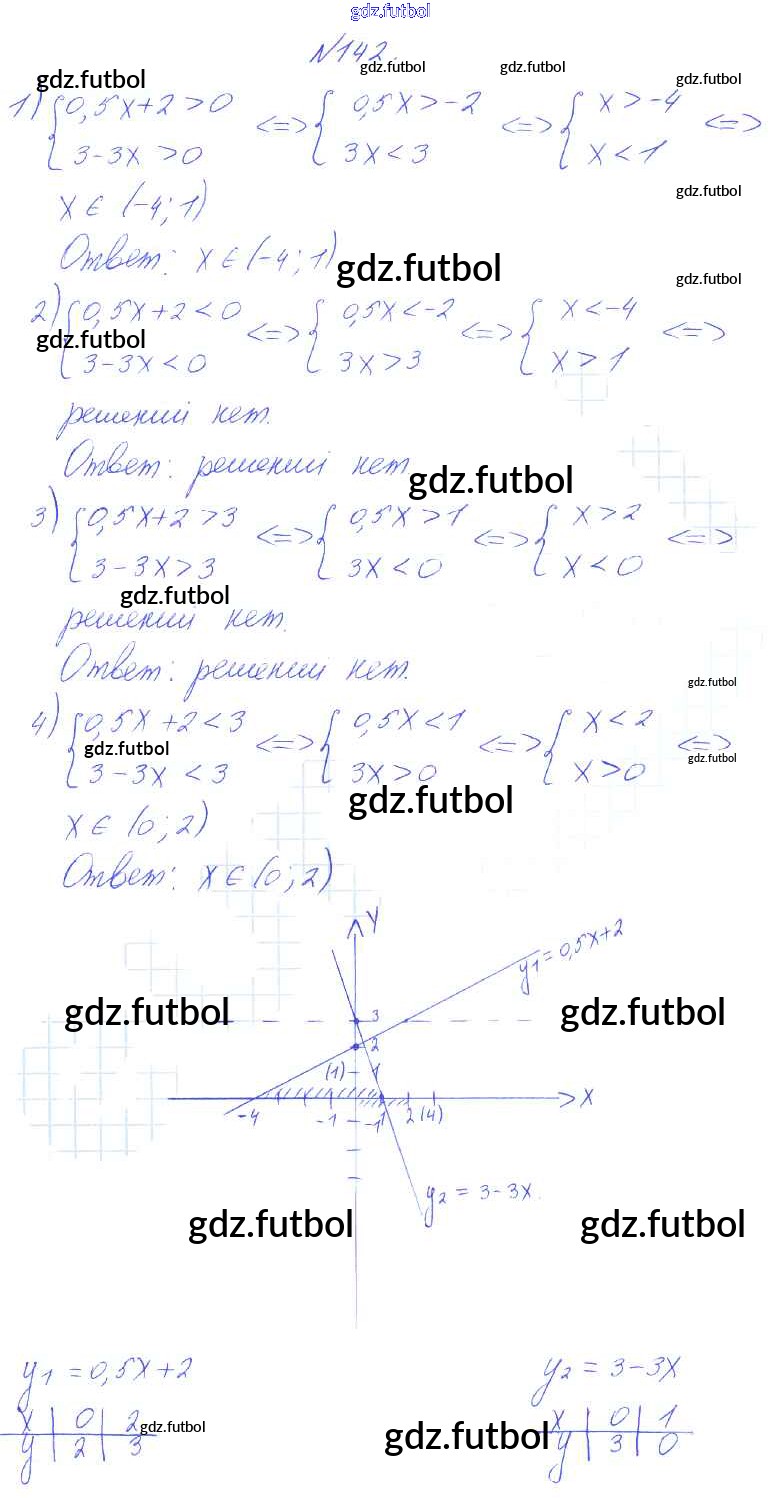 gdz.futbol
№142.
gdz.futbol gdz.futbol gdz.futbol gdz.futbol
1) { 0,5x+2>0 <=> { 0,5x>-2 <=> { x>-4 <=>
3-3x>0 3x<3 x<1
gdz.futbol
x∈(-4;1)
Ответ: x∈(-4;1) gdz.futbol
gdz.futbol
2) { 0,5x+2<0 <=> { 0,5x<-2 <=> { x<-4 <=>
gdz.futbol
3-3x<0 3x>3 x>1
решений нет.
Ответ: решений нет gdz.futbol
3) { 0,5x+2>3 <=> { 0,5x>1 <=> { x>2 <=>
3-3x>3 3x<0 x<0
gdz.futbol
решений нет.
Ответ: решений нет.
gdz.futbol
4) { 0,5x+2<3 <=> { 0,5x<1 <=> { x<2 <=>
gdz.futbol gdz.futbol
3-3x<3 3x>0 x>0
gdz.futbol
x∈(0;2)
Ответ: x∈(0;2)
y
y1=0,5x+2
gdz.futbol gdz.futbol
3
2
(1) 1
-4 -1 -1 1 2 (4) x
y2=3-3x.
gdz.futbol gdz.futbol
y1=0,5x+2 y2=3-3x
x 0 2 gdz.futbol x 0 1
y 2 3 gdz.futbol y 3 0